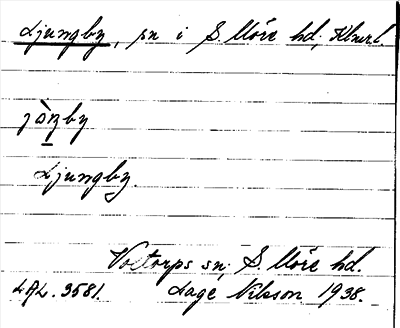 Ljungby, sn i S. Möre hd, Klmrl.
jòŋby
Ljungby.
Voxtorps sn, S. Möre hd.
LAL. 3581. Lage Nilsson 1938.